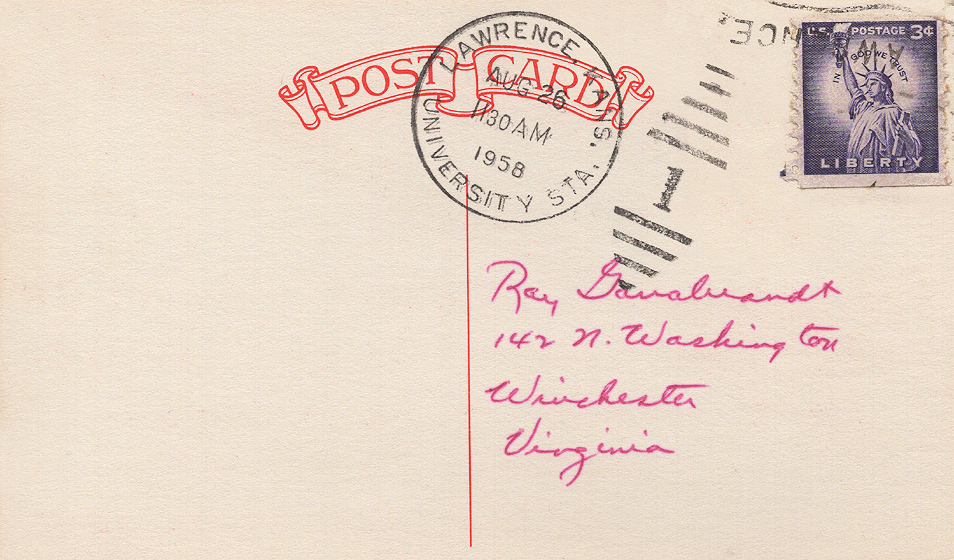 POST CARD
LAWRENCE, KANS.
AUG 26
1130 AM
1958
UNIVERSITY STA.
1
U.S. POSTAGE 3¢
IN GOD WE TRUST
LIBERTY
Ray
142 N. Washington
Winchester
Virginia